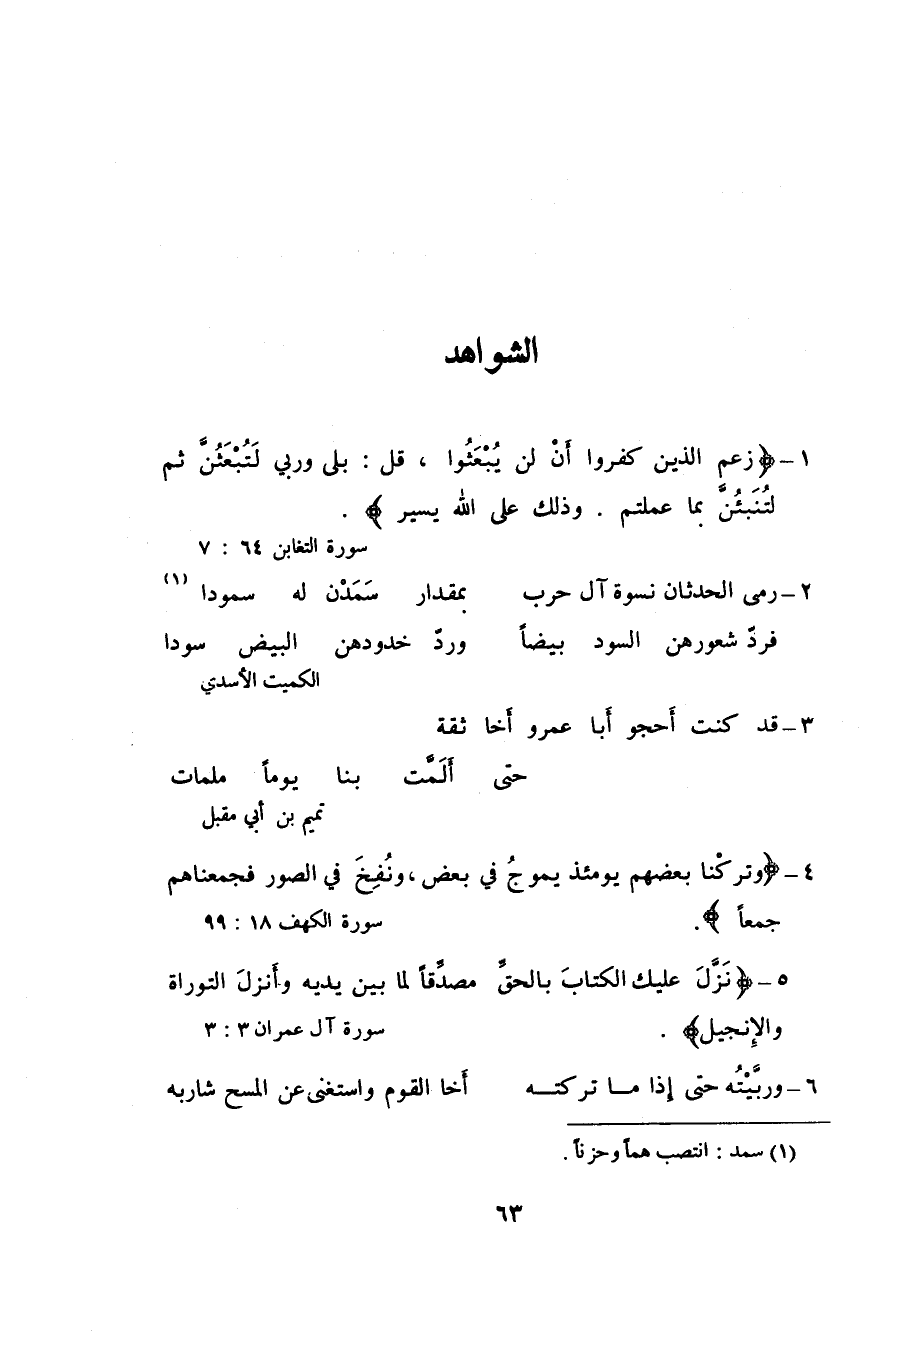 الشواهد
١ـ ﴿زعم الذين كفروا أَنْ لن يُبْعَثُوا ، قل : بلى وربي لَتُبْعَثُنَّ ثم
لتُنَبئُنَّ بما عملتم . وذلك على الله يسير ﴾ .
سورة التغابن ٦٤ : ٧
٢ـ رمى الحدثان نسوة آل حرب بمقدار سَمَدْن له سمودا (١)
فردّ شعورهن السود بيضاً وردّ خدودهن البيض سودا
الكميت الأسدي
٣ـ قد كنت أَحجو أَبا عمرو أَخا ثقة
حتى أَلَمَّت بنا يوماً ملمات
تميم بن أبي مقبل
٤ـ ﴿وتركْنا بعضهم يومئذ يموجُ في بعض ، ونُفِخَ في الصور فجمعناهم
جمعاً ﴾ .
سورة الكهف ١٨ : ٩٩
٥ـ ﴿نَزَّلَ عليك الكتابَ بالحقِّ مصدِّقاً لما بين يديه وأَنزلَ التوراة
والإِنجيل﴾ .
سورة آل عمران ٣ : ٣
٦ـ وربَّيْتُه حتى إذا مـا تركتـه أَخا القوم واستغنى عن المسح شاربه
(١) سمد : انتصب هماً وحزناً .
٦٣